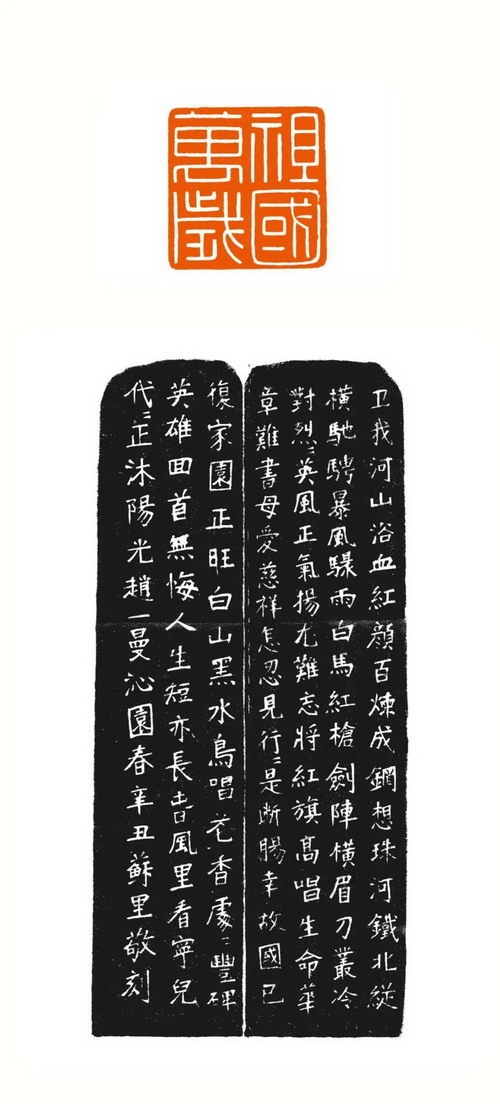 祖國
萬歲
卫我河山浴血紅顔百煉成鋼想珠河鐵北縱
橫馳騁暴風驟雨白馬紅槍劍陣橫眉刀叢冷
對烈〻英風正氣揚尤難忘將紅旗高唱生命華
章難書母愛慈祥怎忍見行〻是断腸幸故國已
復家園正旺白山黑水鳥唱花香處〻豐碑
英雄回首無悔人生短亦長春風里看寧兒
代〻正沐陽光趙一曼沁園春辛丑蘇里敬刻